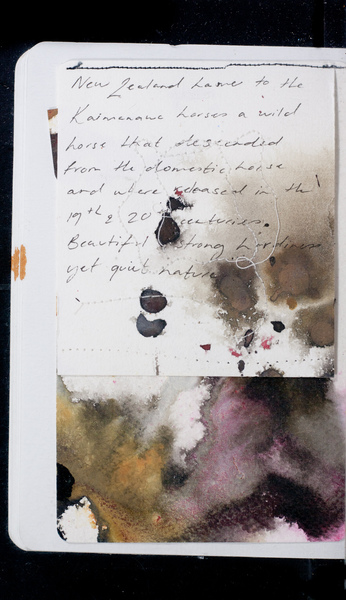 New Zealand home to the
Kaimanawa horses a wild
horse that descended
from the domestic horse
and where released in the
19th & 20 centuries.
Beautiful strong hardiness
yet quiet nature